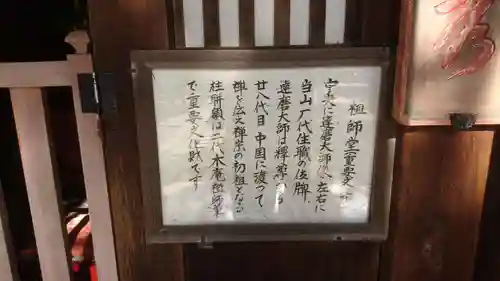 祖師堂(重要文
中央に達磨大師像、左右に
当山歴代住職の位牌、
達磨大師は釋尊から
廿八代目 中国に渡って、
禅を伝え禅宗の初祖となる
柱聯額は二代木庵禅師筆
で重要文化財です